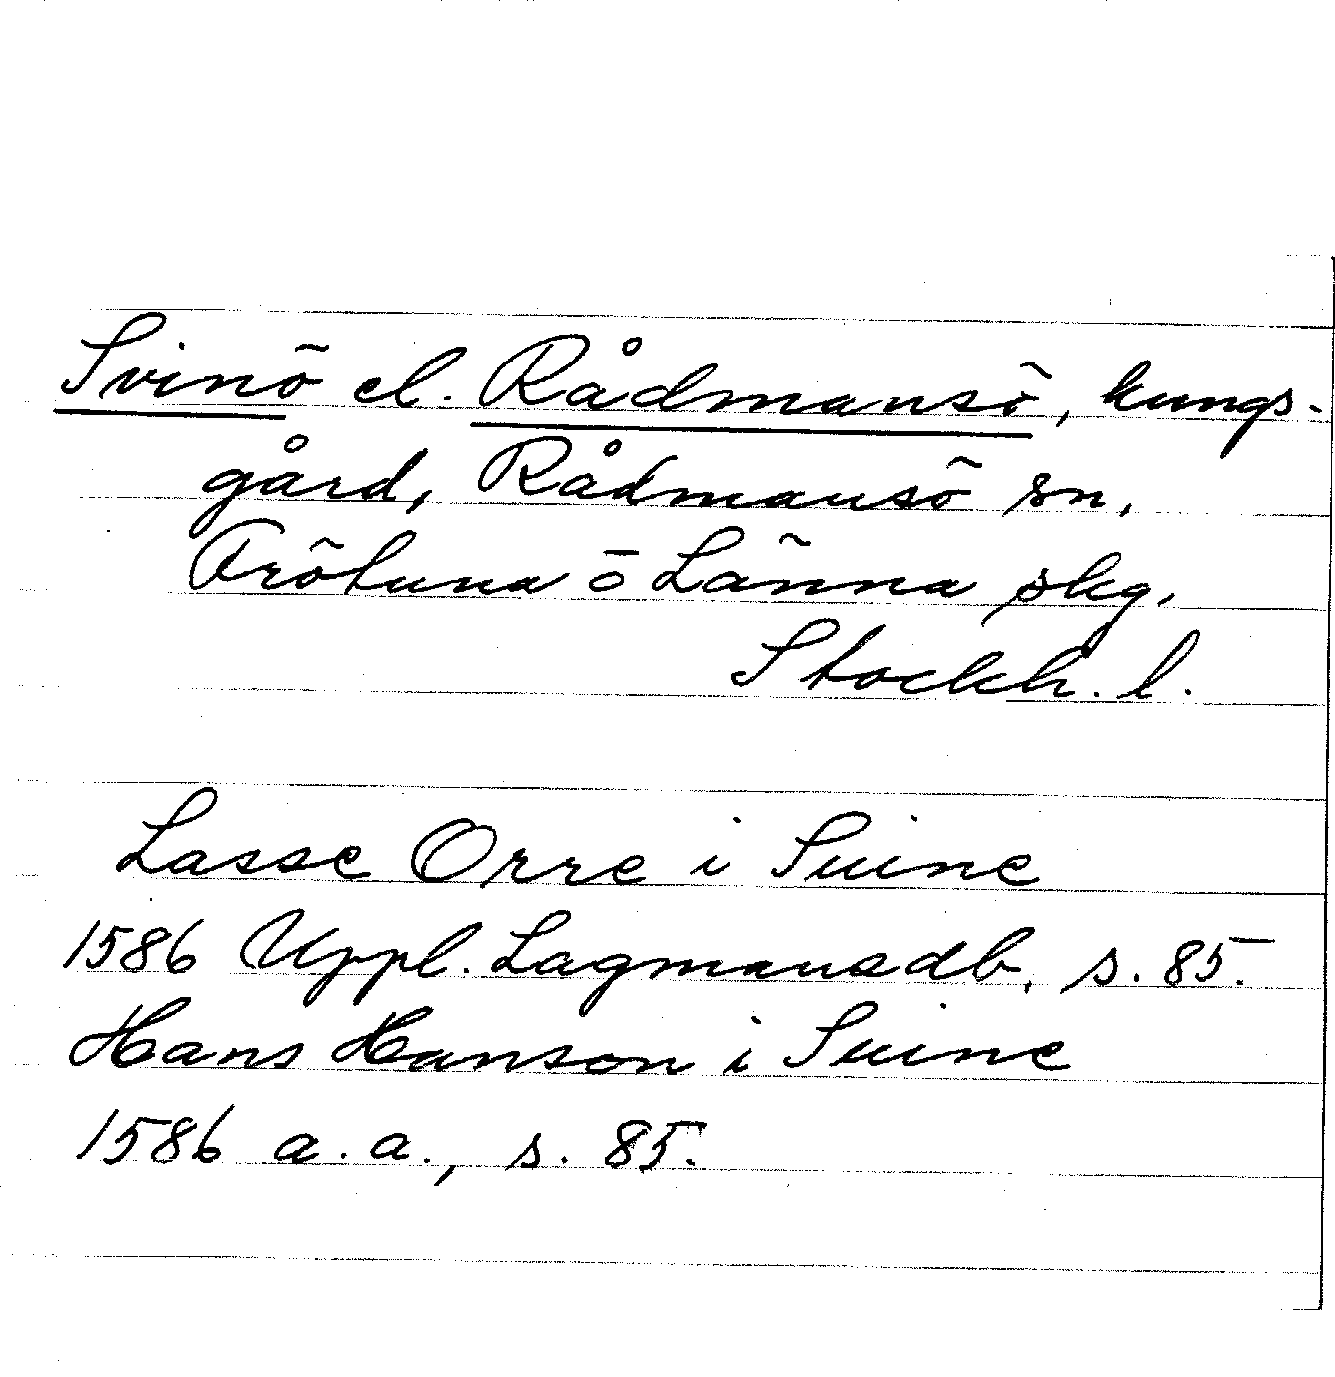 Svinö el. Rådmansö, kungs-
gård, Rådmansö sn,
Frötuna o Länna skg,
Stockh. l.
Lasse Orre i Suine
1586 Uppl. Lagmansdb, s. 85.
Hans Hanson i Suine
1586 a.a., s. 85.